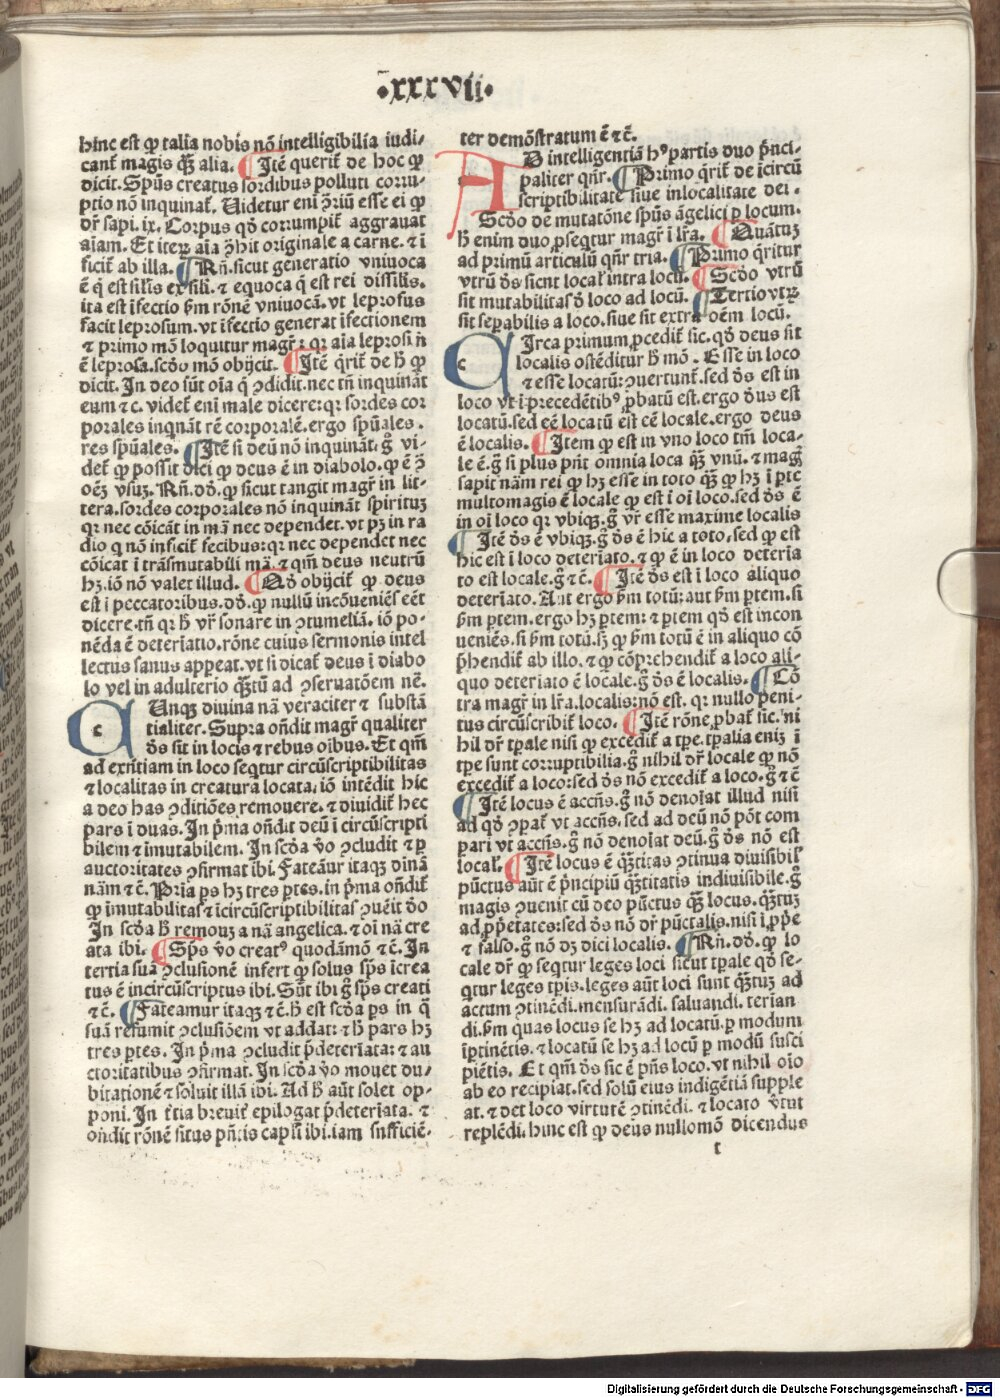 ·xxxvii·
hinc est ꝙ talia nobis nō intelligibilia iudi-
cant᷑ magis qꝫ̄ alia. ¶ Itē querit᷑ de hoc ꝙ
dicit. Spūs creatus sordibus polluti corru-
ptio nō inquinat᷑. Uidetur eni ꝯ̄riū esse ei ꝙ
dr̄ sapi. ix. Corpus qd̓ corrumpit᷑ aggrauat
aīam. Et iteꝝ aīa ꝯ̄hit originale a carne. ⁊ ī
ficit᷑ ab illa. ¶ Rn̄. sicut generatio vniuoca
ē q̄ est silīs ex sili. ⁊ equoca q̄ est rei dissilīs.
ita est īfectio ẜm rōnē vniuocā. vt leprosus
facit leprosum. vt īfectio generat īfectionem
⁊ primo mō loquitur magr̄: qꝛ aīa leprosi n̄
ē leprosa. scd̓o mō obijcit. ¶ Itē q̄rit᷑ de ẖ ꝙ
dicit. In deo sūt oīa q̄ ꝯdidit. nec tn̄ inquināt
eum ⁊ c. videt᷑ eni male dicere: qꝛ sordes cor
porales inqnāt rē corporalē. ergo spūales.
res spūales. ¶ Itē si deū nō inquināt. g̊ vi-
det᷑ ꝙ possit dici ꝙ deus ē in diabolo. ꝙ ē ꝯ̄
oēꝫ vsuꝫ. Rn̄. dd̓. ꝙ sicut tangit magr̄ in lit-
tera. sordes corporales nō inquināt spirituꝫ
qꝛ nec cōicāt in mā nec dependet. vt pꝫ in ra
dio q nō inficit᷑ fecibus: qꝛ nec dependet nec
cōicat ī trāsmutabili mā. ⁊ qm̄ deus neutrū
hꝫ. iō nō valet illud. ¶ Qd̓ obijcit᷑ ꝙ deus
est ī peccatoribus. dd̓. ꝙ nullū incōueniēs eēt
dicere. tn̄ qꝛ ẖ vr̄ sonare in ꝯtumeliā. iō po-
nēda ē determīatio. rōne cuius sermonis intel
lectus sanus appeat. vt si dicat᷑ deus ī diabo
lo vel in adulterio qꝫ̄tū ad ꝯseruatōem nē.
CUnqꝫ diuina nā veraciter ⁊ substā
tialiter. Supra on̄dit magr̄ qualiter
ds̄ sit in locis ⁊ rebus oībus. Et qm̄
ad exn̄tiam in loco seqtur circūscriptibilitas
⁊ localitas in creatura locata. iō intēdit hic
a deo has ꝯditiōes remouere. ⁊ diuidit᷑ hec
pars ī duas. In p̄ma on̄dit deū ī circūscripti
bilem ⁊ īmutabilem. In scd̓a v̊o ꝯcludit ⁊ ꝑ
auctoritates ꝯfirmat ibi. Fateāur itaqꝫ dīnā
nām ⁊ c̄. Pria ꝑs hꝫ tres ꝑtes. in p̄ma on̄dit᷑
ꝙ īmutabilitas ⁊ īcircūscriptibilitas ꝯuēit d̓o
In scd̓a ẖ remouꝫ a nā angelica. ⁊ oī nā cre
ata ibi. ¶ Sp̄s v̊o creatꝰ quodāmō ⁊ c̄. In
tertia suā ꝯclusionē infert ꝙ solus sp̄s īcrea
tus ē incircūscriptus ibi. Sūt ibi g̊ sp̄s creati
⁊ c̄. ¶ Fateamur itaqꝫ ⁊ c̄. ẖ est scd̓a ꝑs in q̄
suā resumit ꝯclusiōem vt addat: ⁊ ẖ pars hꝫ
tres ꝑtes. In p̄ma ꝯcludit p̄deterīata: ⁊ au
ctoritatibus ꝯfirmat. In scd̓a v̊o mouet du-
bitationē ⁊ soluit illā ibi. Ad ẖ aūt solet op-
poni. In t̄tia breuit᷑ epilogat p̄deterīata. ⁊
on̄dit rōnē situs pn̄tis capl̄i ibi. iam sufficiē-
ter demōstratum ē ⁊ c̄.
AD intelligentiā hꝰ partis duo p̄nci-
paliter qn̄r. ¶ Primo q̄rit᷑ de īcircū
scriptibilitate siue inlocalitate dei.
Scd̓o de mutatōne spūs āgelici ꝑ locum.
ẖ enim duo ꝓseqtur magr̄ ī lr̄a. ¶ Quātuꝫ
ad primū articulū qn̄r tria. ¶ Primo q̄ritur
vtrū ds̄ sicut locat᷑ intra locū. ¶ Scd̓o vtrū
sit mutabilitas d̓ loco ad locū. ¶ Tertio vtꝝ
sit seꝑabilis a loco. siue sit extra oēm locū.
CIrca primum ꝓcedit᷑ sic. qd̓ deus sit
localis ostēditur ẖ mō. Esse in loco
⁊ esse locatū: ꝯuertunt᷑. sed ds̄ est in
loco vt ī precedētibꝰ ꝓbatū est. ergo d̄us est
locatū. sed eē locatū est eē locale. ergo deus
ē localis. ¶ Item ꝙ est in vno loco tm̄ loca-
le ē. g̊ si plus pn̄t omnia loca qꝫ̄ vnū. ⁊ magꝭ
sapit nām rei ꝙ hꝫ esse in toto qꝫ̄ ꝙ hꝫ ī ꝑte
multomagis ē locale ꝙ est ī oī loco. sed ds̄ ē
in oī loco qꝛ vbiqꝫ. g̊ vr̄ esse maxime localis
¶ Itē ds̄ ē vbiqꝫ. g̊ ds̄ ē hic a toto, sed ꝙ est
hic est ī loco deterīato. ⁊ ꝙ ē in loco deterīa
to est locale. g̊ ⁊ c̄. ¶ Itē ds̄ est ī loco aliquo
deterīato. Aut ergo ẜm totū: aut ẜm ꝑtem. si
ẜm ꝑtem. ergo hꝫ ꝑtem: ⁊ ꝑtem qd̓ est incon
ueniēs. si ẜm totū. sꝫ ꝙ ẜm totū ē in aliquo cō
p̄hendit᷑ ab illo. ⁊ ꝙ cōprehendit᷑ a loco ali-
quo deterīato ē locale. g̊ ds̄ ē localis. ¶ Cō
tra magr̄ in lr̄a. localis: nō est. qꝛ nullo peni-
tus circūscribit᷑ loco. ¶ Itē rōne ꝓbat᷑ sic. ni
hil dr̄ tꝑale nisi ꝙ excedit᷑ a tꝑe. tꝑalia eniꝫ ī
tꝑe sunt corruptibilia. g̊ nihil dr̄ locale ꝙ nō
excedit᷑ a loco: sed ds̄ nō excedit᷑ a loco. g̊ ⁊ c̄
¶ Itē locus ē accn̄s. g̊ nō denoīat illud nisi
ad qd̓ ꝯꝑat᷑ vt accn̄s. sed ad deū nō pōt com
pari vt accn̄s. g̊ nō denoīat deū. g̊ ds̄ nō est
local᷑. ¶ Itē locus ē qꝫ̄titas ꝯtinua diuisibil᷑
pūctus aūt ē p̄ncipiū qꝫ̄titatis indiuisibile. g̊
magis ꝯuenit cū deo pūctus qꝫ̄ locus. qꝫ̄tuꝫ
ad ꝓp̄etates: sed ds̄ nō dr̄ pūctalis. nisi īꝓp̄e
⁊ falso. g̊ nō dꝫ dici localis. ¶ Rn̄. dd̓. ꝙ lo
cale dr̄ ꝙ seqtur leges loci sicut tꝑale qd̓ se-
qtur leges tꝑis. leges aūt loci sunt qꝫ̄tuꝫ ad
actum ꝯtinēdi. mensurādi. saluandi. terīan
di. ẜm quas locus se hꝫ ad locatū. ꝑ modum
īꝑtinētis. ⁊ locatū se hꝫ ad locū ꝑ modū susci
piētis. Et qm̄ ds̄ sic ē pn̄s loco. vt nihil oīo
ab eo recipiat. sed solū eius indigētiā supple
at. ⁊ det loco virtutē ꝯtinēdi. ⁊ locato v̓tut̄
replēdi. hinc est ꝙ deus nullomō dicendus
t
Digitalisierung gefördert durch die Deutsche Forschungsgemeinschaft - DFG